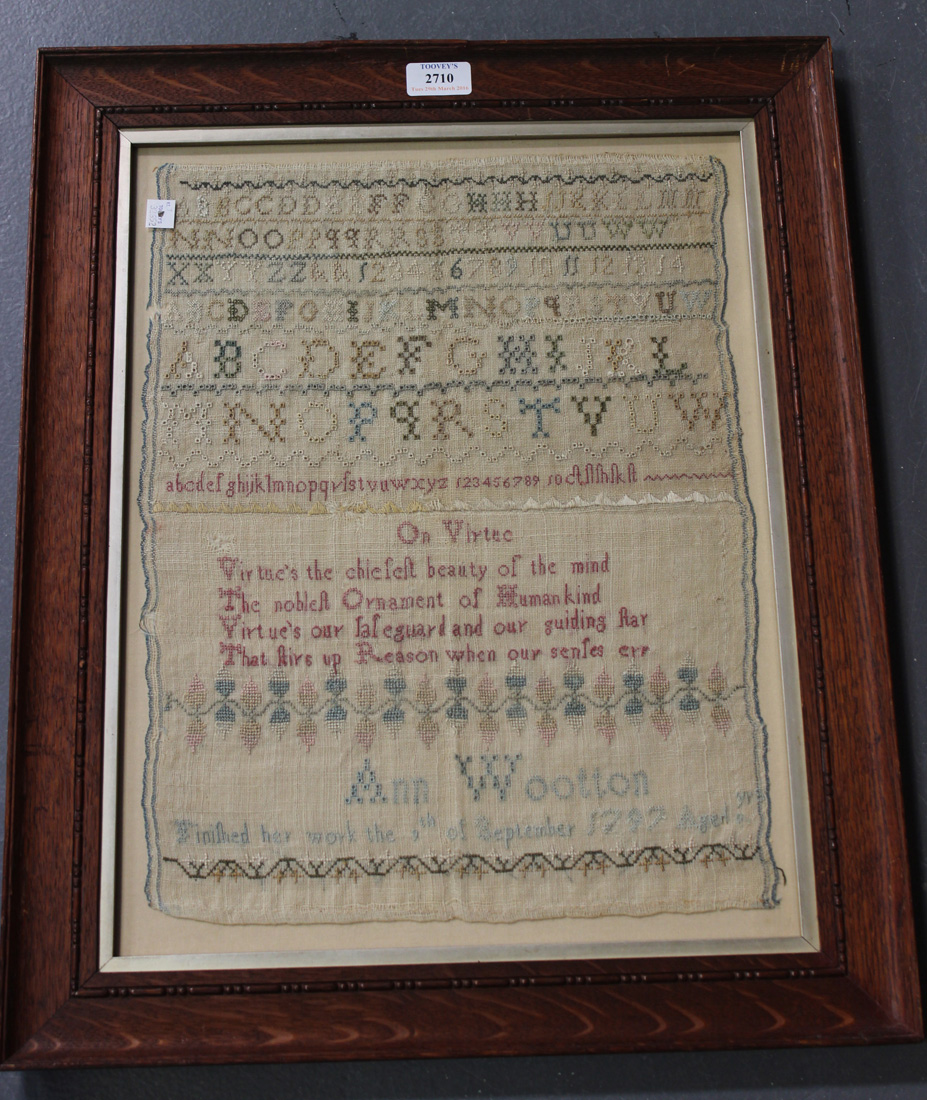 TOOVEY'S
2710
A B B C C D D F F G H H H I J K K L L M M
N N O O P P q q R R S S V V U U W W
X X Y Y Z Z 1 2 3 4 5 6 7 8 9 10 11 12 13 14
A B C D E F G I J K L M N O P q R S T V U W
A B C D E F G H I J K L
M N O P q R S T V U W
abcdefghijklmnopqrſstvuwxyz 123456789 10 ct ſl ſh ſk ſt
On Virtue
Virtue's the chiefeſt beauty of the mind
The nobleſt Ornament of Humankind
Virtue's our ſafeguard and our guiding ſtar
That ſtirs up Reason when our senſes err
Ann Wootton
Finiſhed her work the 9th of September 1797 Aged 9 yrs